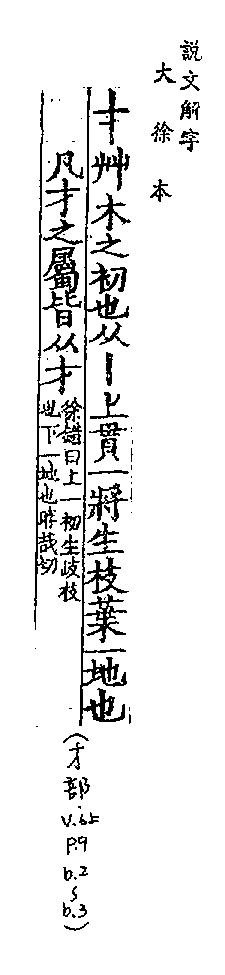 說文解字
大徐本
才艸木之初也从丨上貫一將生枝葉一地也
凡才之屬皆从才徐鍇曰上一初生歧枝
也下一地也昨哉切
(才部.
V.6上
P.9
b.2
~
b.3)